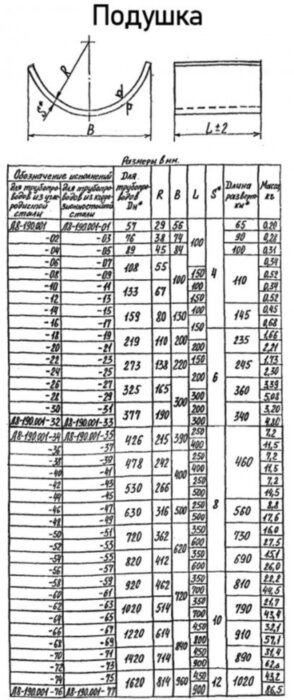 Подушка
R
S*
B
L±2
Размеры в мм.
Обозначение исполнений Для трубопроводов Дн* R B L S* Длина развертки* Масса, кг
для трубопроводов из углеродистой стали для трубопроводов из коррозионностойкой стали
Л8-190.001 Л8-190.001-01 57 29 56 100 4 65 0,20
-02 -03 76 38 74 90 0,28
-04 -05 89 45 84 100 0,31
-06 -07 108 55 100 110 0,34
-08 -09 150 0,52
-10 -11 133 67 100 0,34
-12 -13 150 0,52
-14 -15 159 80 130 100 145 0,45
-16 -17 150 0,68
-18 -19 219 110 200 6 235 1,66
-20 -21 200 2,21
-22 -23 273 138 220 150 245 1,73
-24 -25 200 2,30
-26 -27 325 165 300 200 360 3,39
-28 -29 300 5,08
-30 -31 377 190 200 340 3,20
Л8-190.001-32 Л8-190.001-33 300 4,80
Л8-190.001-34 Л8-190.001-35 426 215 390 250 8 460 7,2
-36 -37 400 11,5
-38 -39 478 242 400 250 7,2
-40 -41 400 11,5
-42 -43 530 266 250 7,2
-44 -45 14,5
-46 -47 630 316 500 250 560 8,8
-48 -49 500 17,6
-50 -51 720 362 620 350 730 16,0
-52 -53 600 27,5
-54 -55 820 412 350 690 15,1
-56 -57 600 26,0
-58 -59 920 462 720 350 10 810 22,2
-60 -61 700 44,5
-62 -63 1020 514 350 790 21,7
-64 -65 700 43,4
-66 -67 1220 614 840 450 910 32,1
-68 -69 800 57,1
-70 -71 1420 714 450 890 31,4
-72 -73 900 62,8
-74 -75 1620 814 960 450 12 1020 43,2
Л8-190.001-76 Л8-190.001-77 900 86,5